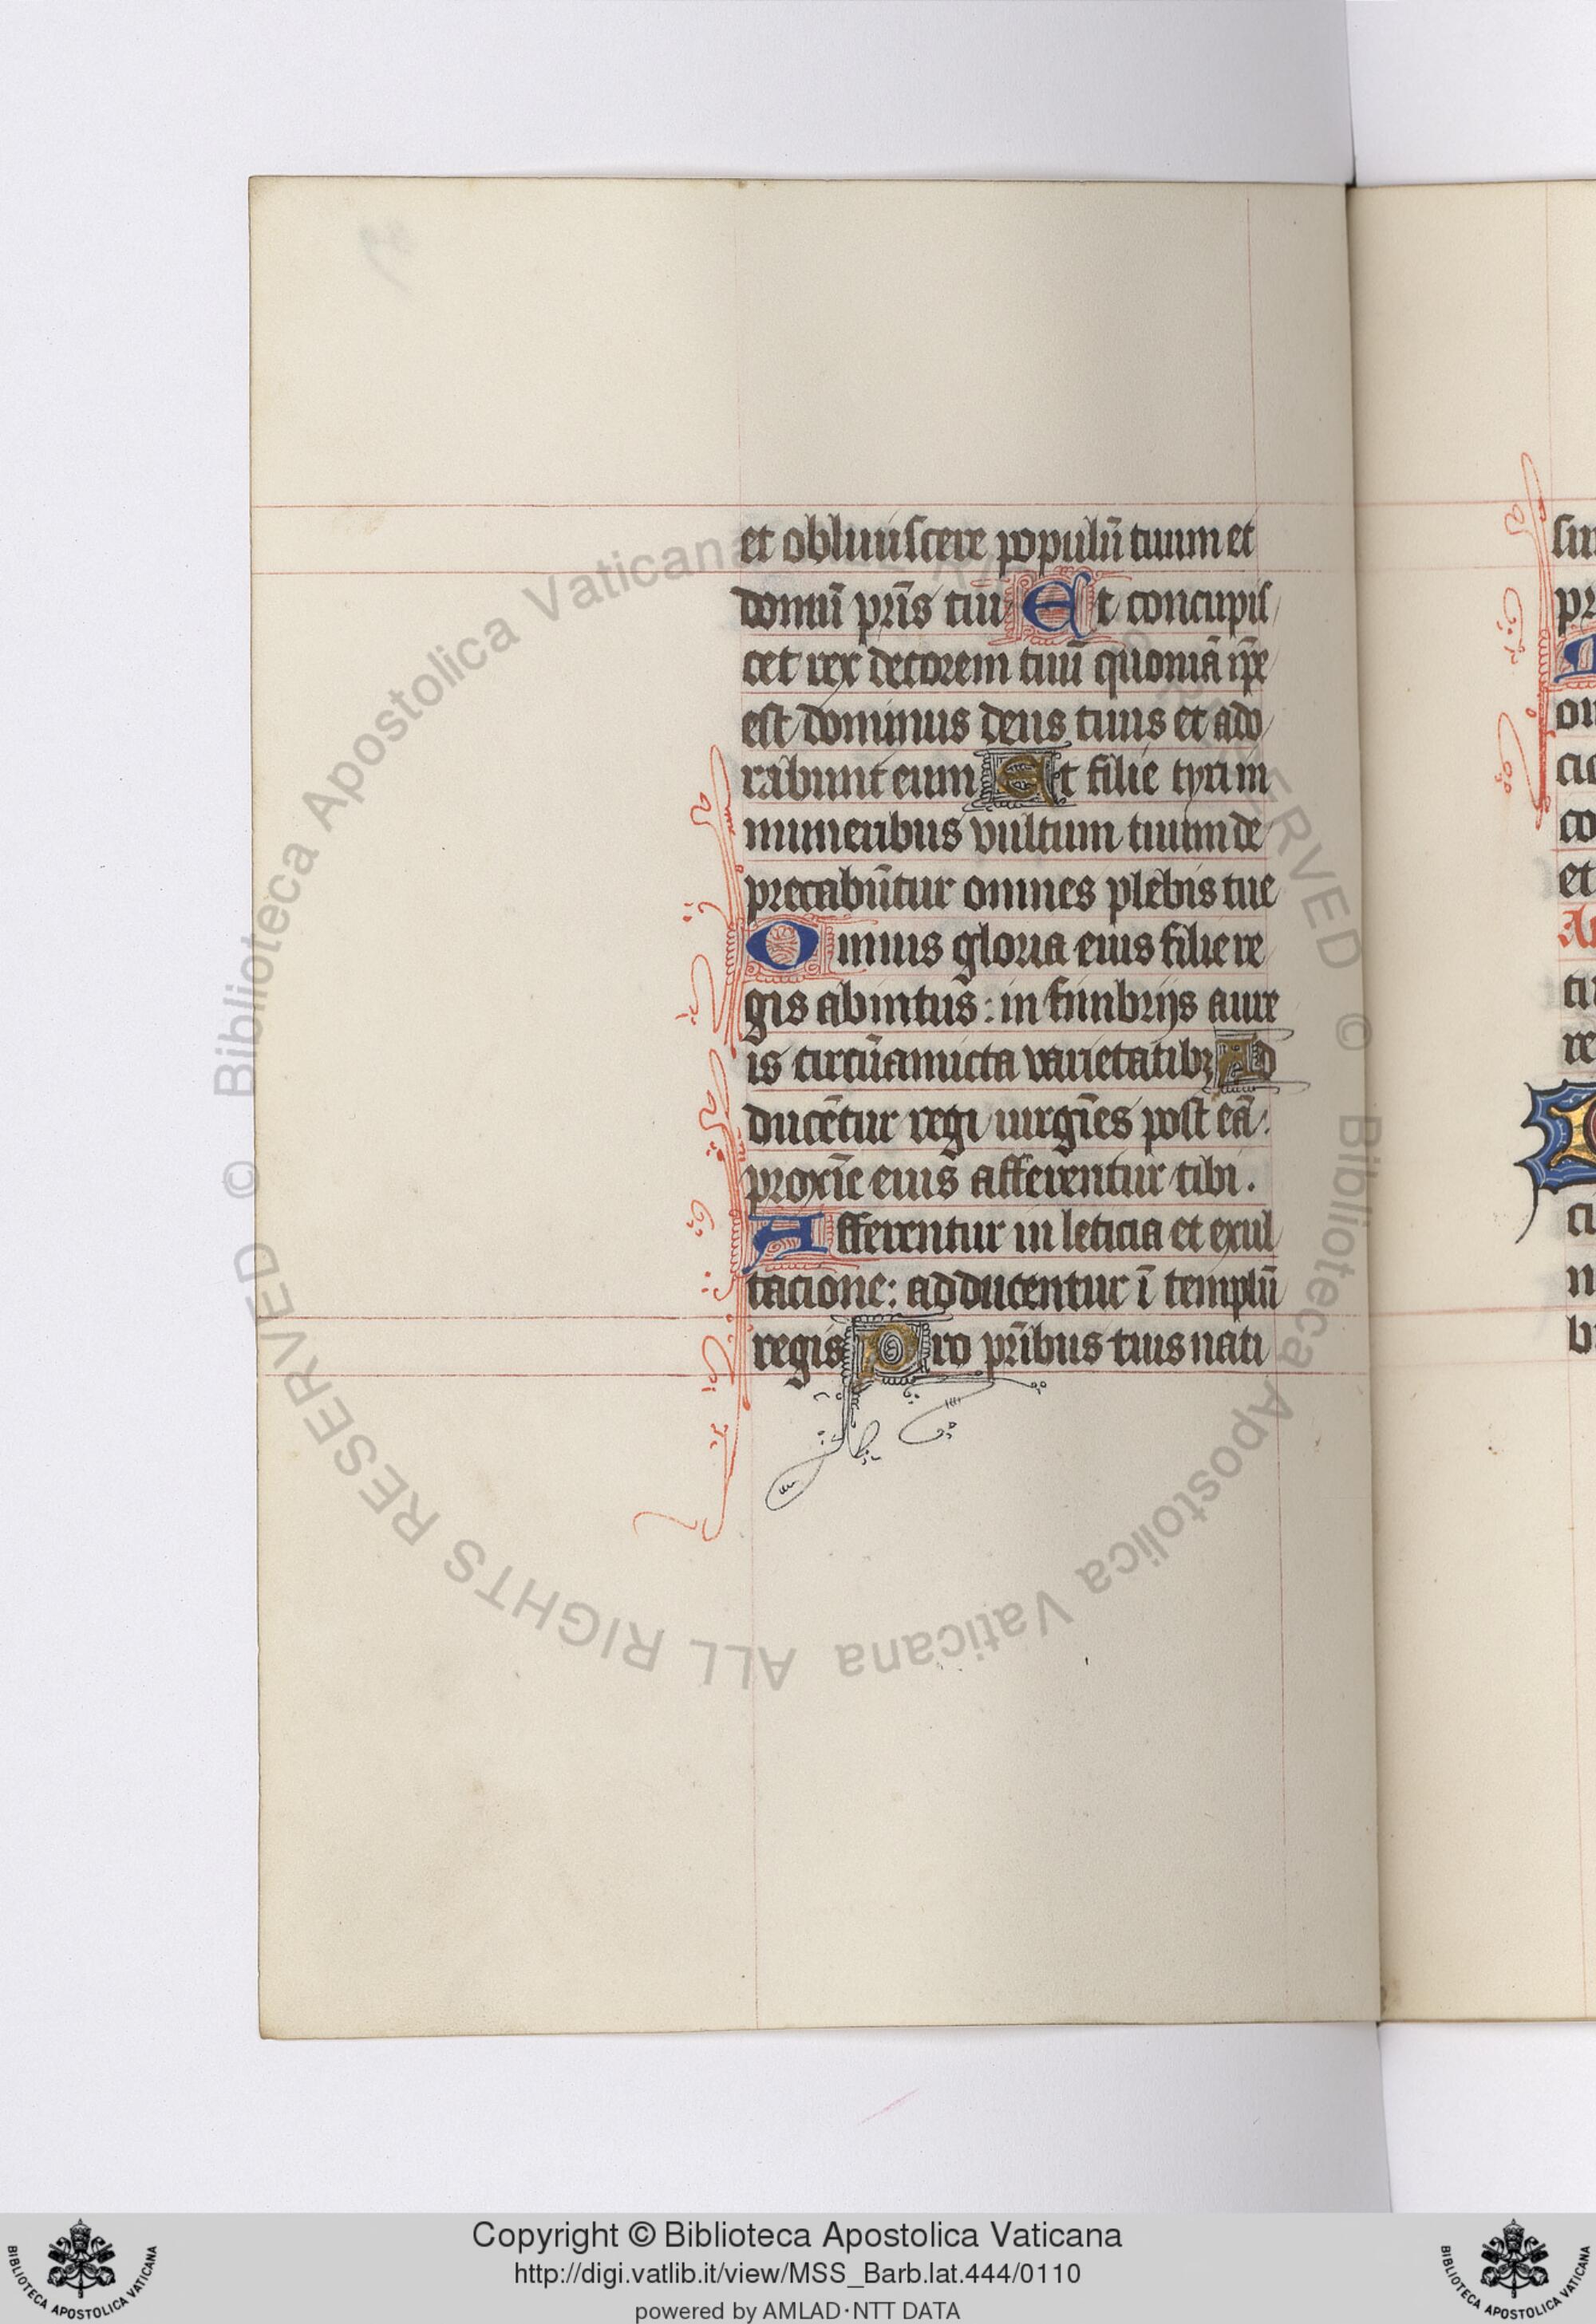 et obliuiscere populū tuum et
domū pr̄is tui Et concupis
cet rex decorem tuū quoniā ip̄e
est dominus deus tuus et ado
rabunt eum Et filie tyri in
muneribus vultum tuum de
precabūtur omnes plebis tue
Omnis gloria eius filie re
gis abintus: in fimbrijs aure
is circūamicta varietatibꝫ Ad
ducētur regi uirgīes post eā.
proxīe eius afferentur tibi.
Afferentur in leticia et exul
tacione: adducentur ī templū
regis Pro pr̄ibus tuis nati
© Biblioteca Apostolica Vaticana ALL RIGHTS RESERVED © Biblioteca Apostolica Vaticana ALL RIGHTS RESERVED
Copyright © Biblioteca Apostolica Vaticana
http://digi.vatlib.it/view/MSS_Barb.lat.444/0110
powered by AMLAD·NTT DATA
BIBLIOTECA APOSTOLICA VATICANA
BIBLIOTECA APOSTOLICA VATICANA